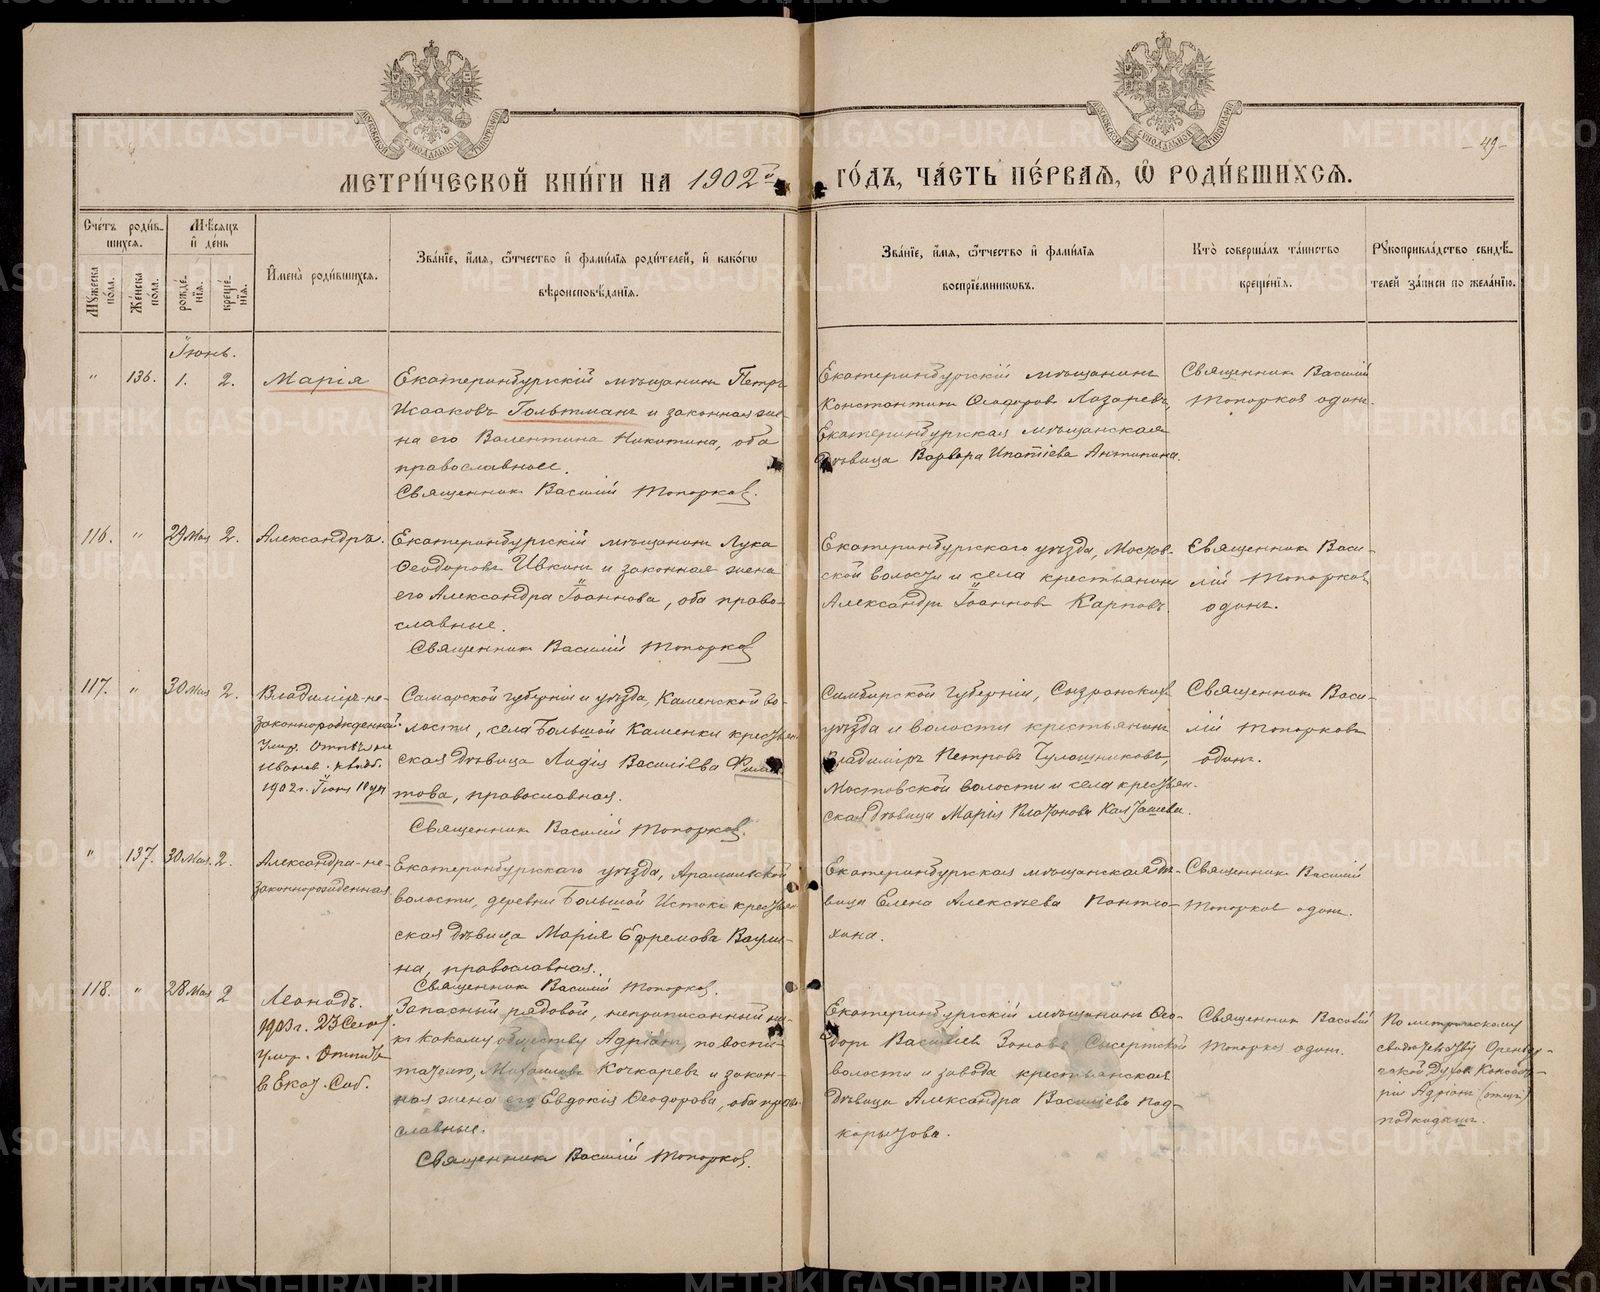 МЕТРИ́ЧЕСКОЙ КНИ́ГИ НА 1902й ГО́ДЪ, ЧА́СТЬ ПЕ́РВАѦ, Ѽ РОДИ́ВШИХСѦ.
49
Сче́тъ роди́в-
шихся.
Мѣ́сяцъ
и҆ де́нь
Му́жеска по́ла.
Же́нска по́ла.
рожде́-
нїя.
креще́-
нїя.
И҆мена̀ роди́вшихся.
Зва́нїе, и҆́мя, ѻ҆́тчество и҆ фами́лїя роди́телей, и҆ како́гѡ
вѣроисповѣ́данїя.
Зва́нїе, и҆́мя, ѻ҆́тчество и҆ фами́лїя
воспрїе́мникѡвъ.
Кто̀ соверша́лъ та́инство
креще́нїя.
Рꙋкоприкла́дство свидѣ́-
телей за́писи по жела́нїю.
Іюнь.
" 136. 1. 2. Марія
Екатеринбургскій мѣщанинъ Петръ
Исааковъ Гольтманъ и законная же-
на его Валентина Никитина, оба
православные.
Священникъ Василій Топорковъ.
Екатеринбургскій мѣщанинъ
Константинъ Ѳеодоровъ Лазаревъ,
Екатеринбургская мѣщанская
дѣвица Варвара Ипатіева Антипина.
Священникъ Василій
Топорковъ одинъ.
116. " 29 Мая 2. Александръ.
Екатеринбургскій мѣщанинъ Лука
Ѳеодоровъ Ивкинъ и законная жена
его Александра Іоаннова, оба право-
славные.
Священникъ Василій Топорковъ
Екатеринбургскаго уѣзда, Мостов-
ской волости и села крестьянинъ
Александръ Іоанновъ Карповъ.
Священникъ Васи-
лій Топорковъ
одинъ.
117. " 30 Мая 2. Владиміръ-не-
законнорожденный.
Умер.
1902 г. Іюня
Самарской губерніи и уѣзда, Каменской во-
лости, села Большой Каменки крестьян-
ская дѣвица Лидія Василіева Фила-
това, православная.
Священникъ Василій Топорковъ.
Симбирской губерніи, Сызранскаго
уѣзда и волости крестьянинъ
Владиміръ Петровъ Чулошниковъ,
Мостовской волости и села крестьян-
ская дѣвица Марія Платонова Калташева.
Священникъ Васи-
лій Топорковъ
одинъ.
" 137. 30 Мая. 2. Александра-не-
законнорожденная
Екатеринбургскаго уѣзда, Арамильской
волости, деревни Большой Истокъ крестьян-
ская дѣвица Марія Ефремова Ваули-
на, православная.
Священникъ Василій Топорковъ.
Екатеринбургская мѣщанская дѣ-
вица Елена Алексѣева Пантю-
хина.
Священникъ Василій
Топорковъ одинъ.
118. " 28 Мая 2 Леонидъ.
1903 г. 23 Сент.
Умер. Отпѣтъ
в Екат. Соб.
Запасный рядовой, неприписанный ни
къ какому обществу Адріанъ, по воспи-
тателю, Михаиловъ Кочкаревъ и закон-
ная жена его Евдокія Ѳеодорова, оба право-
славные.
Священникъ Василій Топорковъ.
Екатеринбургскій мѣщанинъ Ѳео-
доръ Василіевъ Зоновъ, Сысертской
волости и завода крестьянская
дѣвица Александра Василіева Под-
корытова.
Священникъ Василій
Топорковъ одинъ.
По метрическому
свидѣтельству Оренбур-
гской Духов. Консисто-
ріи Адріанъ (отецъ)
подкидышъ.
METRIKI.GASO-URAL.RU